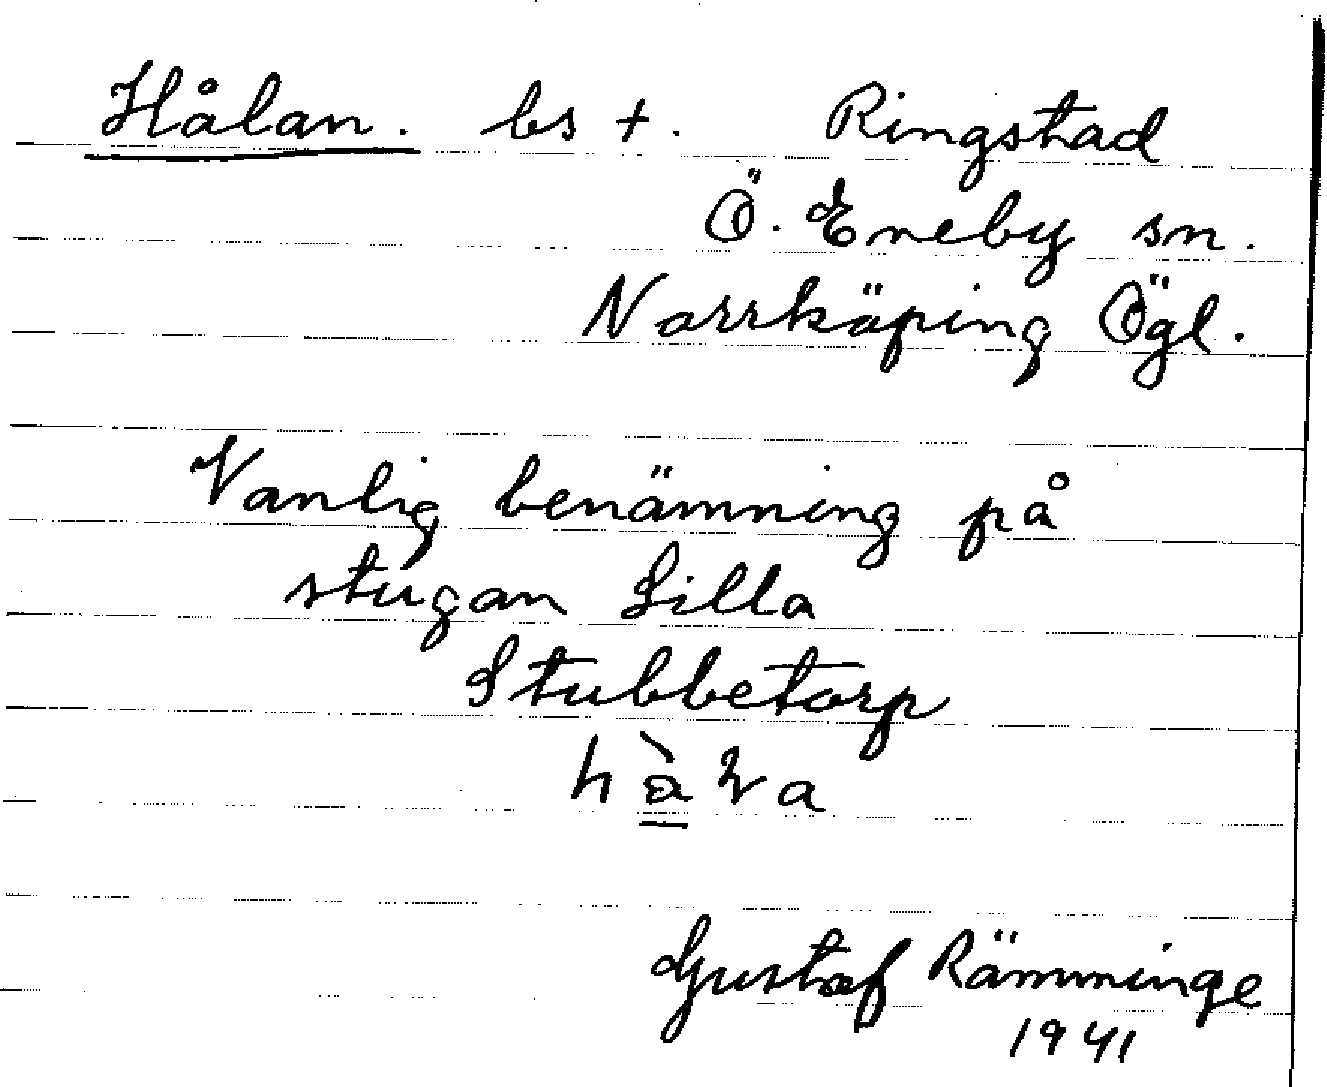 Hålan. bs †. Ringstad
Ö. Eneby sn.
Norrköping Ögl.
Vanlig benämning på
stugan Lilla
Stubbetorp
Gustaf Rämminge
1941